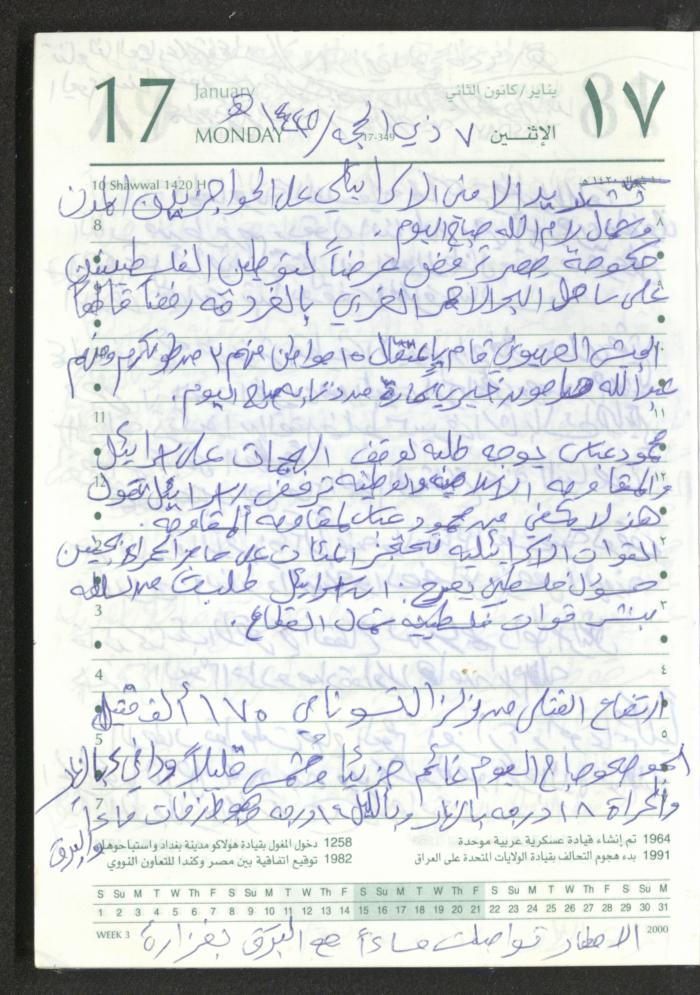 17 January يناير/كانون الثاني ١٧
MONDAY ٧ ذي الحجة/١٤٢٥هـ 17-349 الإثنين
10 Shawwal 1420 H
تشديد الامن الاسرائيلي على الحواجز بين المدن
وشمال رام الله صباح اليوم.
حكومة مصر ترفض عرضاً لتوطين الفلسطينيين
على ساحل البحر الاحمر الغربي بالغردقه رفضاً قاطعاً
الجيش الصهيوني قام باعتقال ١٥ مواطن منهم ٣ من طولكرم ومنهم
عبدالله صباح اليوم.
محمود عباس يوجه طلبه لوقف الهجمات على اسرائيل
والمقاومه الاسلاميه والوطنيه ترفض واسرائيل تقول
هذا لا يكفي من محمود عباس لمقاومه المقاومه.
القوات الاسرائيليه تحتجز المئات على حاجز الحمراء بجنين
مسؤول فلسطيني يصرح: ان اسرائيل طلبت من السلطه
بنشر قوات فلسطينيه شمال القطاع.
ارتفاع القتلى من زلزال تسونامي ١٧٥ ألف قتيل
الجو صحو صباح اليوم غائم جزئياً ومشمس قليلاً ودافئ بالنهار
والحرارة ١٨ درجه بالنهار وبالليل ٩ درجه مساءاً
والبرق
8 ٨
١٠
11 ١١
١٢
٢
3 ٣
4 ٤
5 ٥
7
1964 تم إنشاء قيادة عسكرية عربية موحدة
1258 دخول المغول بقيادة هولاكو مدينة بغداد واستباحوها
1991 بدء هجوم التحالف بقيادة الولايات المتحدة على العراق
1982 توقيع اتفاقية بين مصر وكندا للتعاون النووي
S Su M T W Th F S Su M T W Th F S Su M T W Th F S Su M T W Th F S Su M
1 2 3 4 5 6 7 8 9 10 11 12 13 14 15 16 17 18 19 20 21 22 23 24 25 26 27 28 29 30 31
WEEK 3 2000
الامطار تواصلت مساءاً مع البرق بغزارة